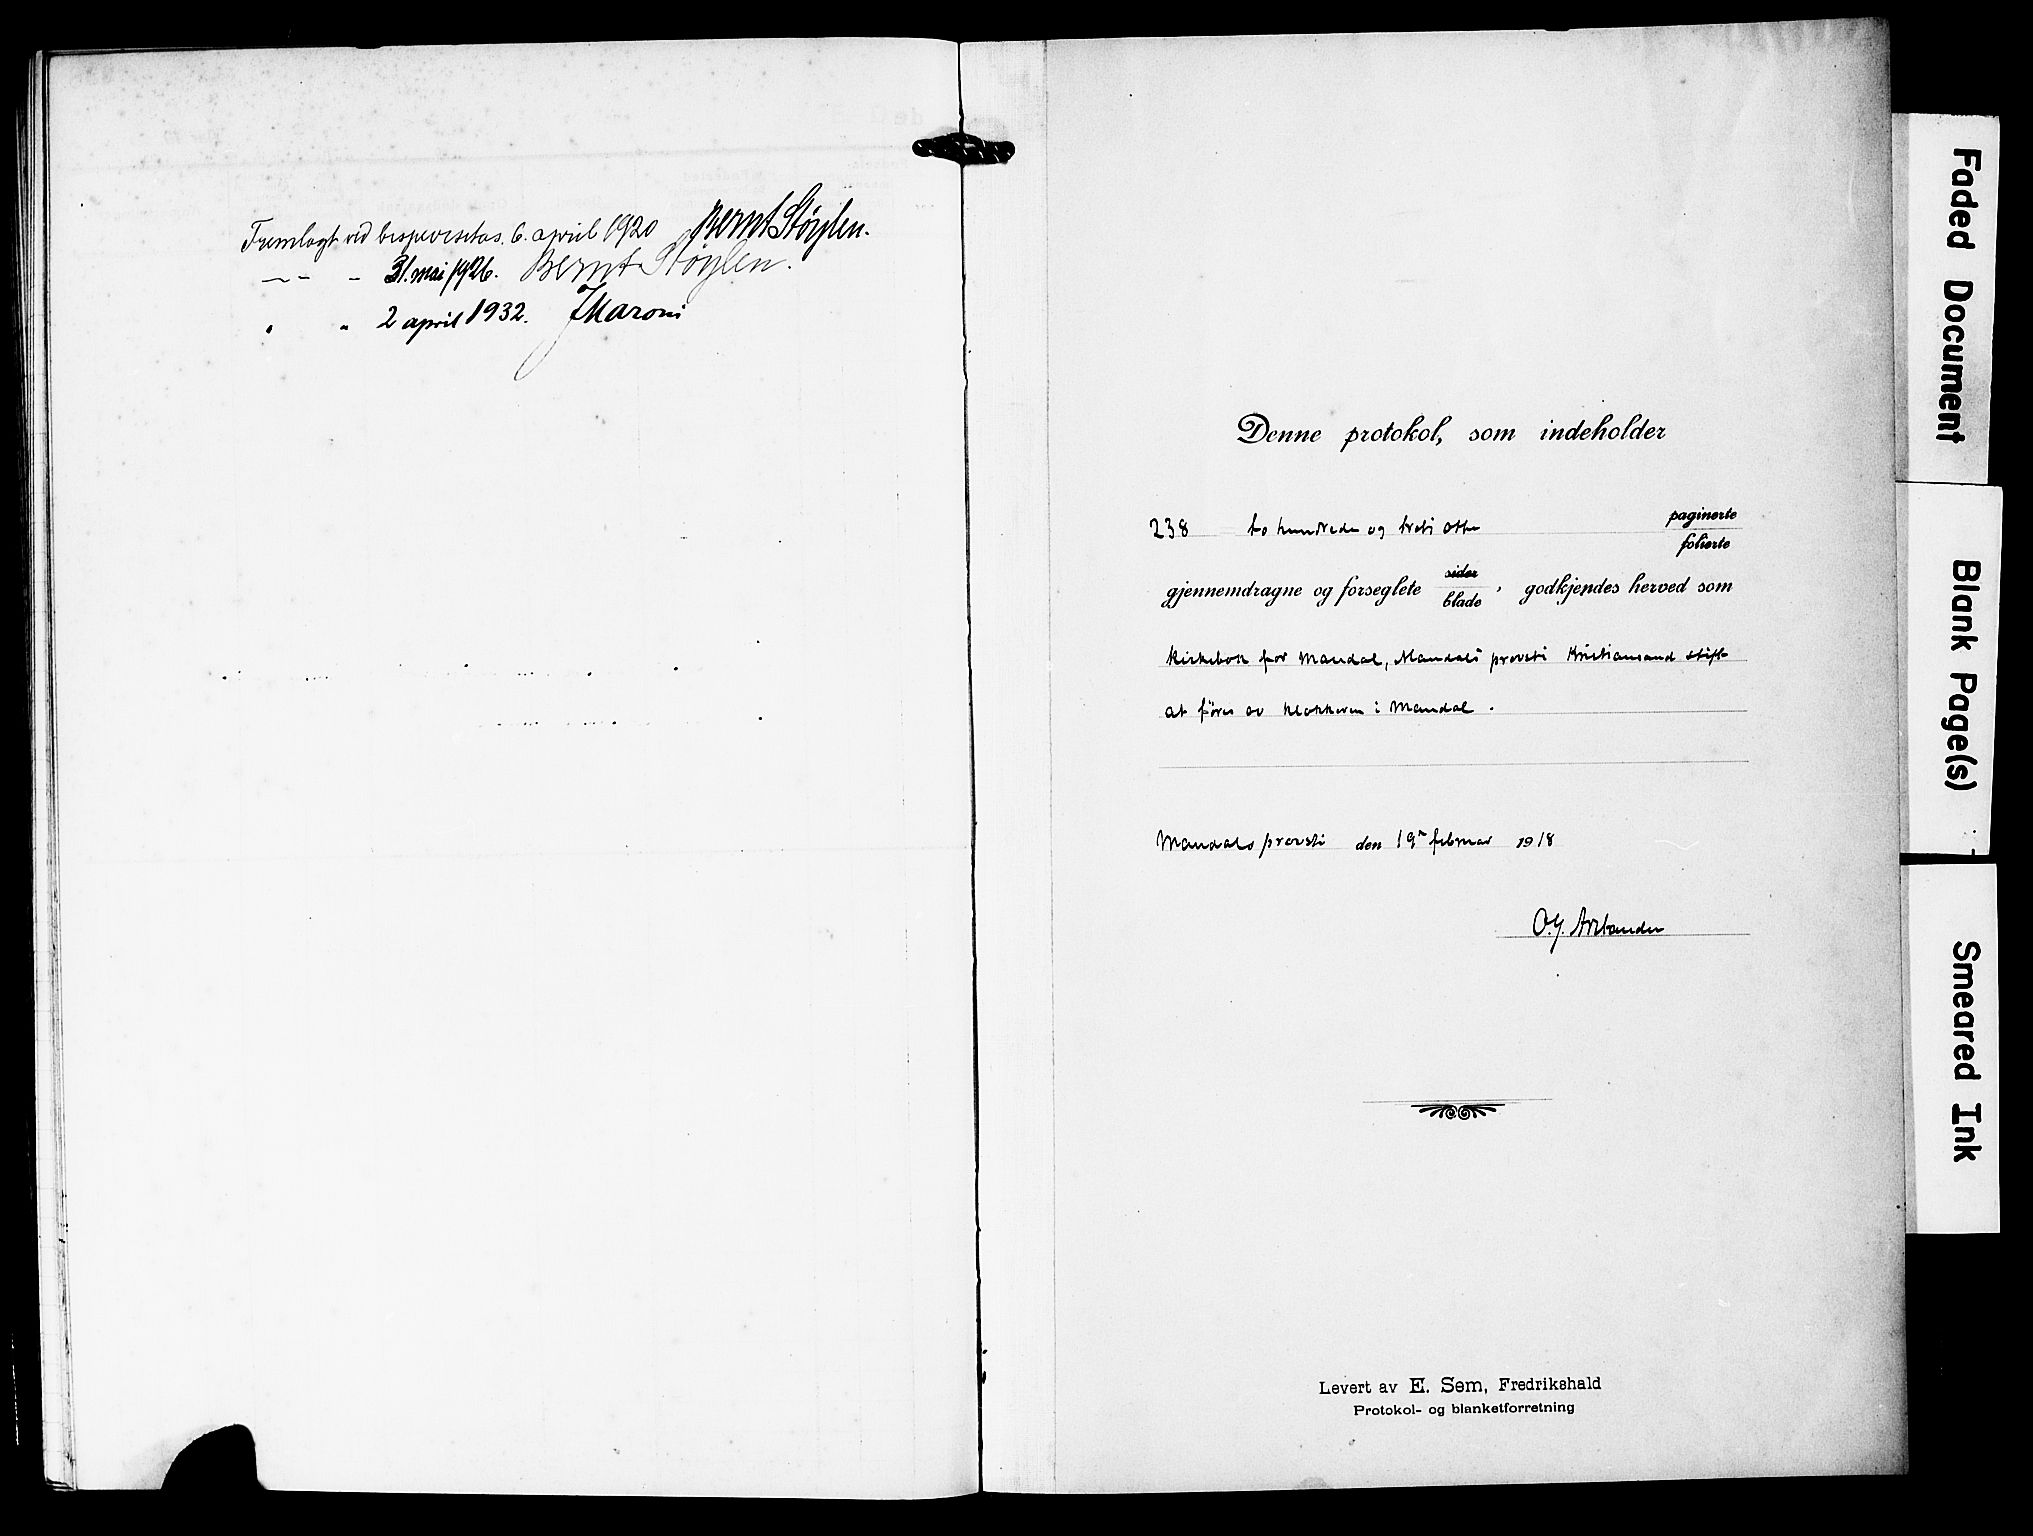 Fremlagt ved bispevisitas. 6. april 1920 Bernt Støylen.
— - - 31. mai 1926. Bernt Støylen.
" " 2 april 1932. J Maroni
Denne protokol, som indeholder
238 to hundrede og treti otte paginerte
folierte
gjennemdragne og forseglete sider
blade, godkjendes herved som
kirkebok for Mandal, Mandals provsti Kristiansand stift
at føres av klokkeren i Mandal.
Mandals provsti den 19de februar 1918
O.G.
Levert av E. Sem, Fredrikshald
Protokol- og blanketforretning
Faded Document
Blank Page(s)
Smeared Ink